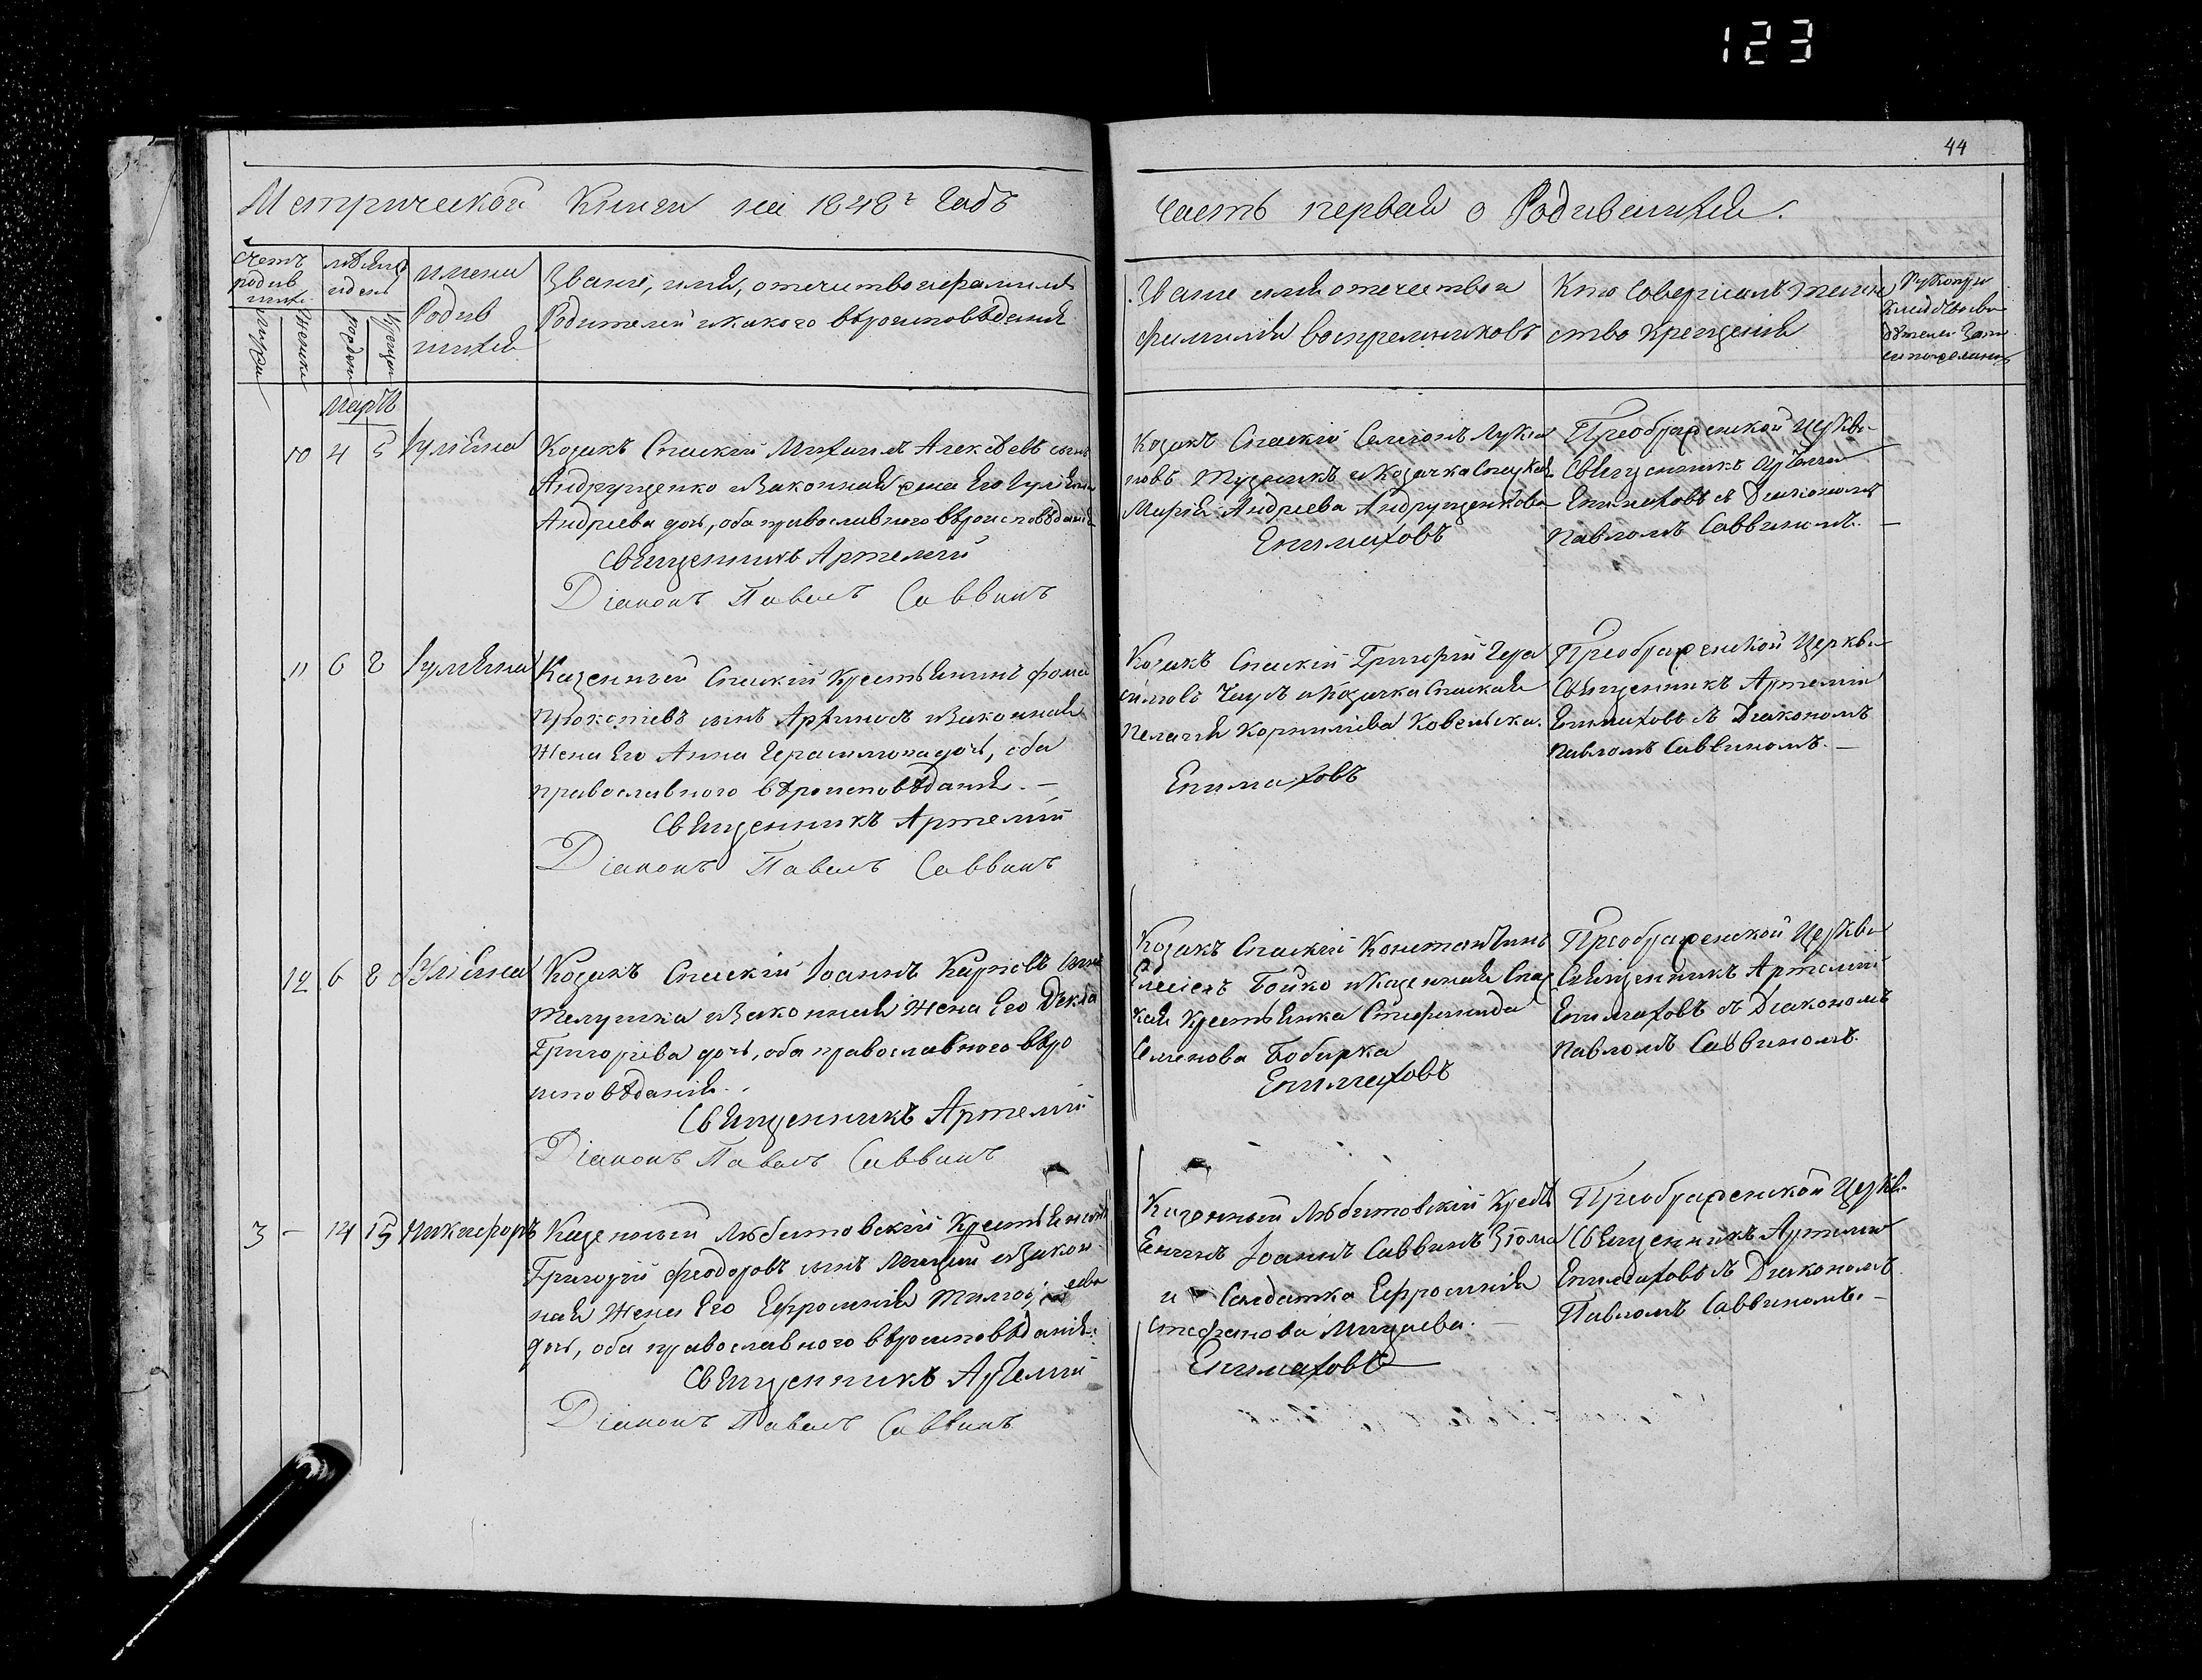 123
44
Метрической Книги на 1848г Годъ
Часть первая о Родившихся.
Счетъ родив шихся
мѣсяцъ и день
имена Родив шихся
Званіе, имя, отечество и фамилія
Родителей и какого вѣроисповѣданія
Званіе имя отечество и
фамилія воспреемниковъ
Кто совершалъ таин
ство крещенія
Мартъ
10 4 5 Іуліянa
Козакъ Спаскій Михаилъ Алексѣевъ сынъ
Андрущенко и Законная жена Его Іуліянa
Андреева дочь, оба православного вѣроисповѣданія
Священникъ Артемій
Діаконъ Павелъ Саввинъ
Козакъ Спаскій Симеонъ Луки
новъ и Козачка Спаская
Марія Андреева Андрущенкова
Епимаховъ
Преображенской Церкви
Священникъ Артемій
Епимаховъ съ Діакономъ
Павломъ Саввиномъ. —
11 6 8 Іуліянa
Казенный Спаскій Крестьянинъ Фома
Прокопіевъ сынъ и Законная
Жена Его Анна Герасимова дочь, оба
православного вѣроисповѣданія. —
Священникъ Артемій
Діаконъ Павелъ Саввинъ
Козакъ Спаскій Григорій Гера
симовъ и Козачка Спаская
Пелагія Корниліева
Епимаховъ
Преображенской Церкви
Священникъ Артемій
Епимаховъ съ Діакономъ
Павломъ Саввиномъ. —
12 6 8 Іуліянa
Козакъ Спаскій Іоаннъ Карповъ сынъ
Телушка и Законная Жена Его Ѳекла
Григоріева дочь, оба православного вѣро
исповѣданія.
Священникъ Артемій
Діаконъ Павелъ Саввинъ
Козакъ Спаскій Константинъ
Бойко и Казенная Спас
кая Крестьянка Стефанида
Семенова Бобирка
Епимаховъ
Преображенской Церкви
Священникъ Артемій
Епимаховъ съ Діакономъ
Павломъ Саввиномъ.
3 — 14 15 Никифоръ
Казенный Любитовскій Крестьянинъ
Григорій Феодоровъ сынъ и Закон
ная Жена Его Ефросинія
дочь, оба православного вѣроисповѣданія.
Священникъ Артемій
Діаконъ Павелъ Саввинъ
Казенный Любитовскій Кресть
янинъ Іоаннъ Саввинъ
и Солдатка Ефросинія
Стефанова
Епимаховъ
Преображенской Церкви
Священникъ Артемій
Епимаховъ съ Діакономъ
Павломъ Саввиномъ. —